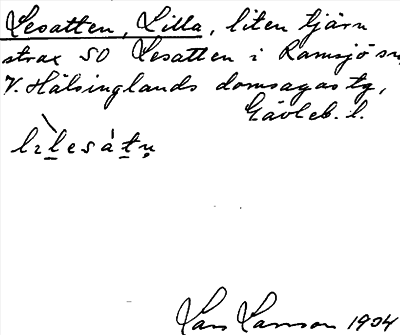 Lesatten, Lilla, liten tjärn
strax SO Lesatten i Ramsjö sn,
V. Hälsinglands domsagas tg,
Gävleb. l.
lɩlesàtṇ
Lars Larsson 1904